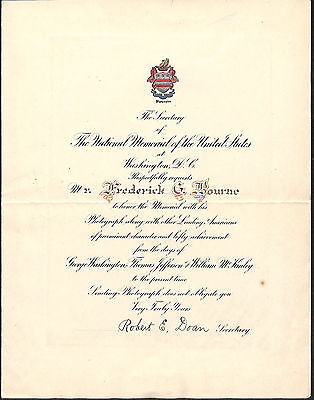 The Secretary
of
The National Memorial of the United States
at
Washington, D.C.
Respectfully requests
Mr. Frederick G. Bourne
to honor the Memorial with his
Photograph along with other Leading Americans
of prominent character and lofty achievement
from the days of
George Washington, Thomas Jefferson & William McKinley
to the present time
Sending Photograph does not obligate you
Very Truly Yours
Robert E. Doan Secretary